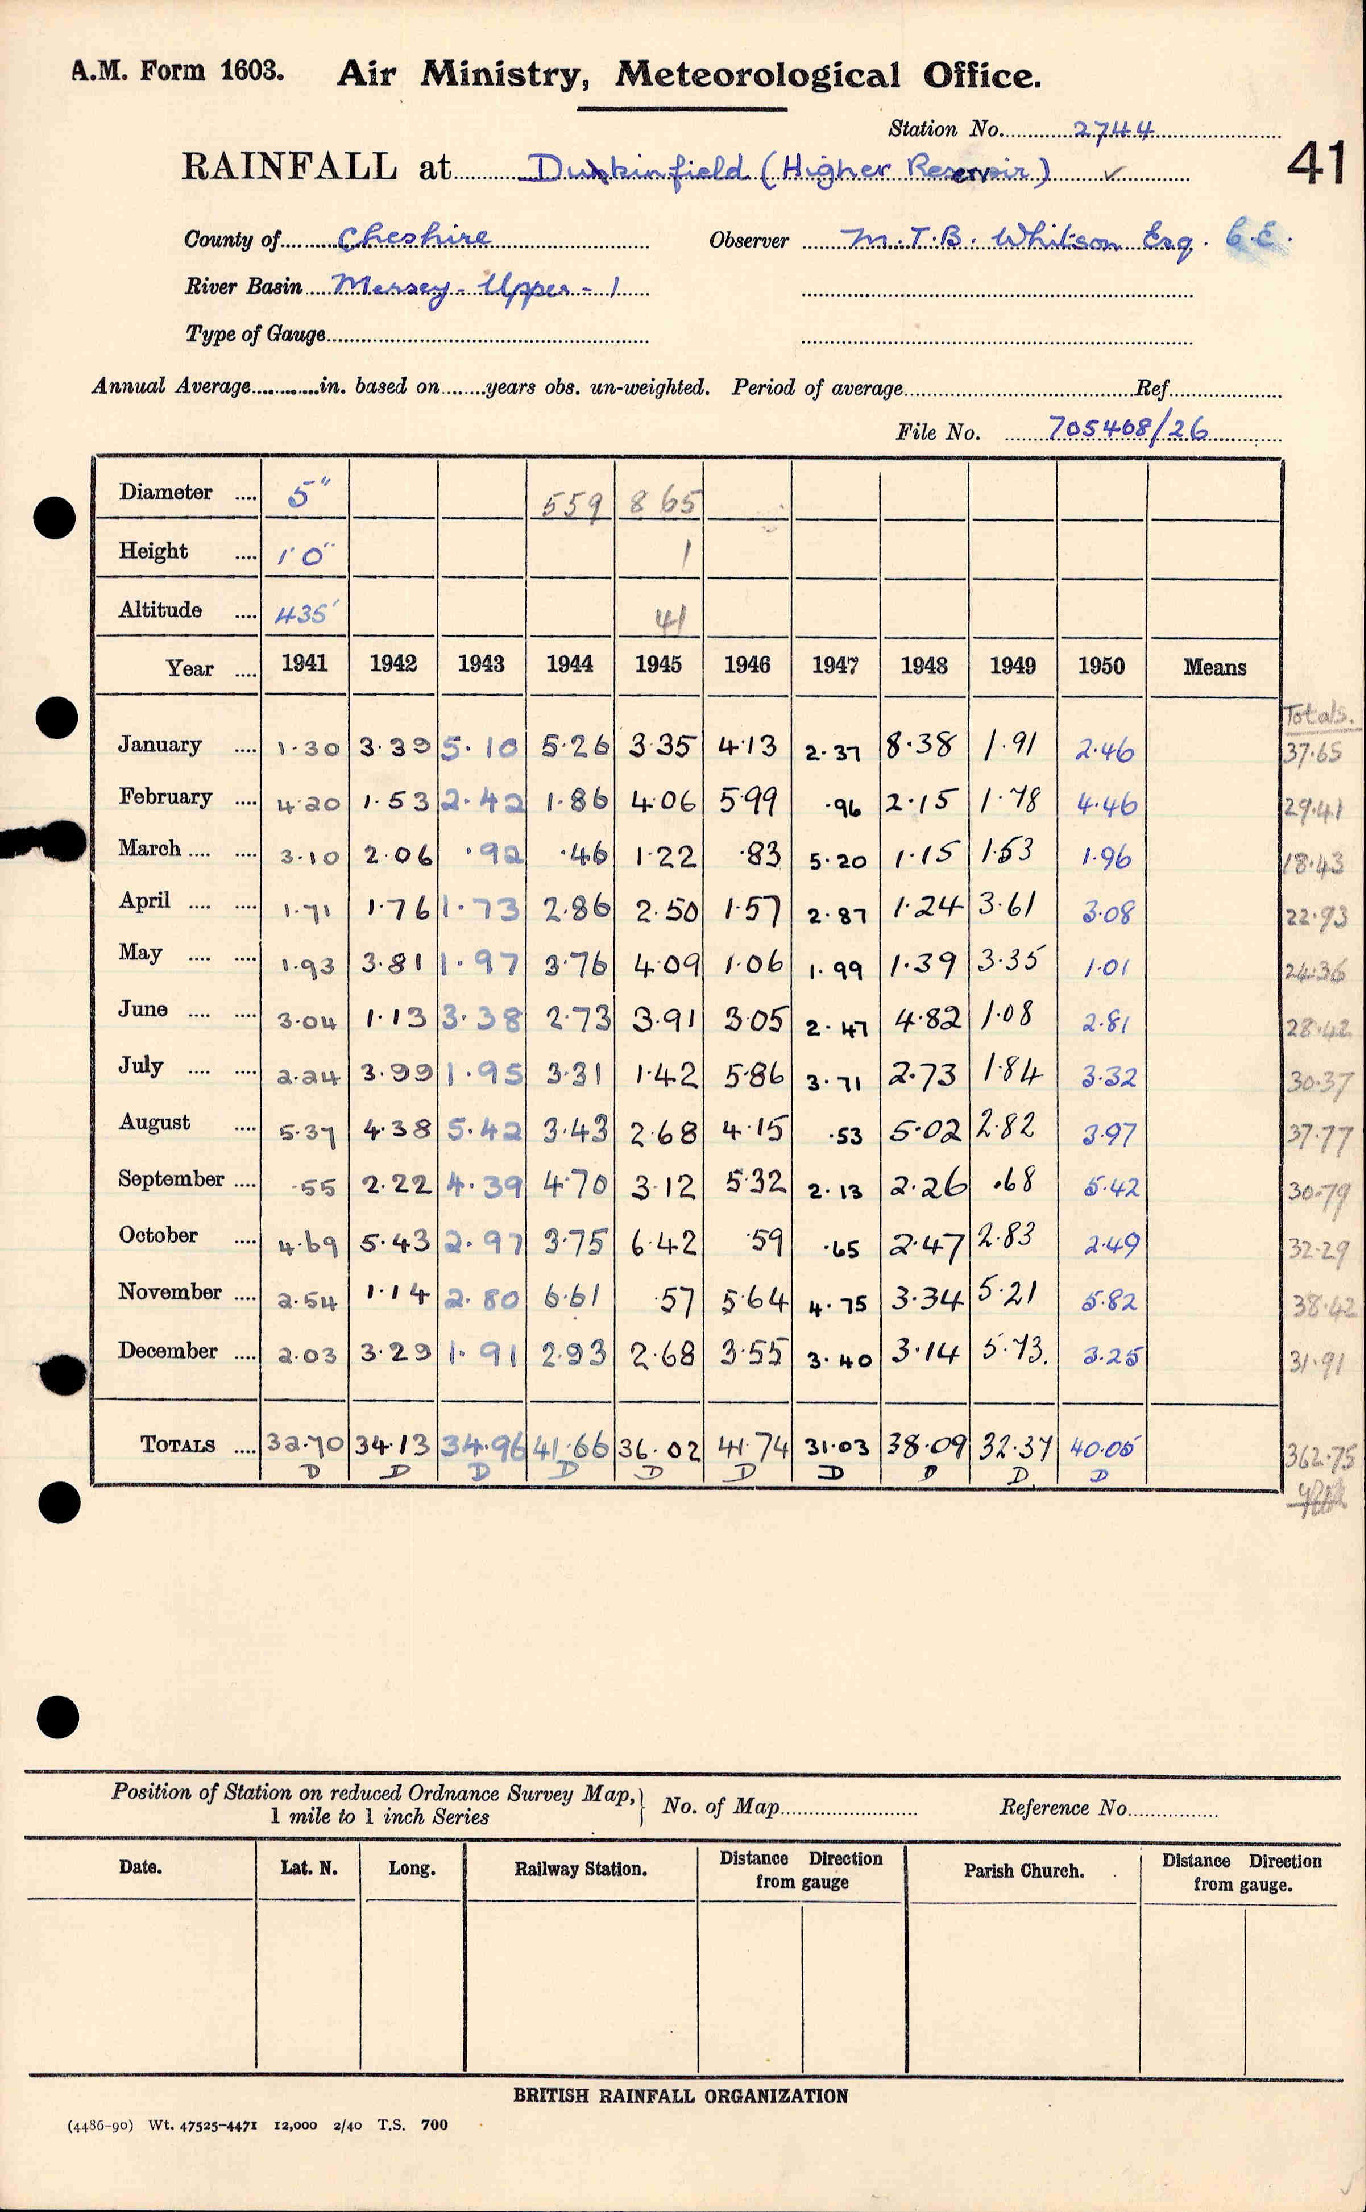 A.M. Form 1603. Air Ministry, Meteorological Office.
Station No. 2744
41
RAINFALL at Dukinfield (Higher Reservoir) ✓
County of Cheshire Observer M.T.B. Whitson Esq. C.E.
River Basin Mersey - Upper - 1
Type of Gauge
Annual Average in. based on years obs. un-weighted. Period of average Ref.
File No. 705408/26
Diameter 5" 559 865
Height 1'0" 1
Altitude 435' 41
Year 1941 1942 1943 1944 1945 1946 1947 1948 1949 1950 Means
Totals.
January 1.30 3.39 5.10 5.26 3.35 4.13 2.37 8.38 1.91 2.46 37.65
February 4.20 1.53 2.42 1.86 4.06 5.99 .96 2.15 1.78 4.46 29.41
March 3.10 2.06 .92 .46 1.22 .83 5.20 1.15 1.53 1.96 18.43
April 1.71 1.76 1.73 2.86 2.50 1.57 2.87 1.24 3.61 3.08 22.93
May 1.93 3.81 1.97 3.76 4.09 1.06 1.99 1.39 3.35 1.01 24.36
June 3.04 1.13 3.38 2.73 3.91 3.05 2.47 4.82 1.08 2.81 28.42
July 2.24 3.99 1.95 3.31 1.42 5.86 3.71 2.73 1.84 3.32 30.37
August 5.37 4.38 5.42 3.43 2.68 4.15 .53 5.02 2.82 3.97 37.77
September .55 2.22 4.39 4.70 3.12 5.32 2.13 2.26 .68 5.42 30.79
October 4.69 5.43 2.97 3.75 6.42 .59 .65 2.47 2.83 2.49 32.29
November 2.54 1.14 2.80 6.61 .57 5.64 4.75 3.34 5.21 5.82 38.42
December 2.03 3.29 1.91 2.93 2.68 3.55 3.40 3.14 5.73. 3.25 31.91
TOTALS 32.70 34.13 34.96 41.66 36.02 41.74 31.03 38.09 32.37 40.05 362.75
D D D D D D D D D. D
Position of Station on reduced Ordnance Survey Map, } No. of Map Reference No.
1 mile to 1 inch Series
Date. Lat. N. Long. Railway Station. Distance from gauge Direction Parish Church. Distance Direction from gauge.
BRITISH RAINFALL ORGANIZATION
(4486-90) Wt. 47525-4471 12,000 2/40 T.S. 700